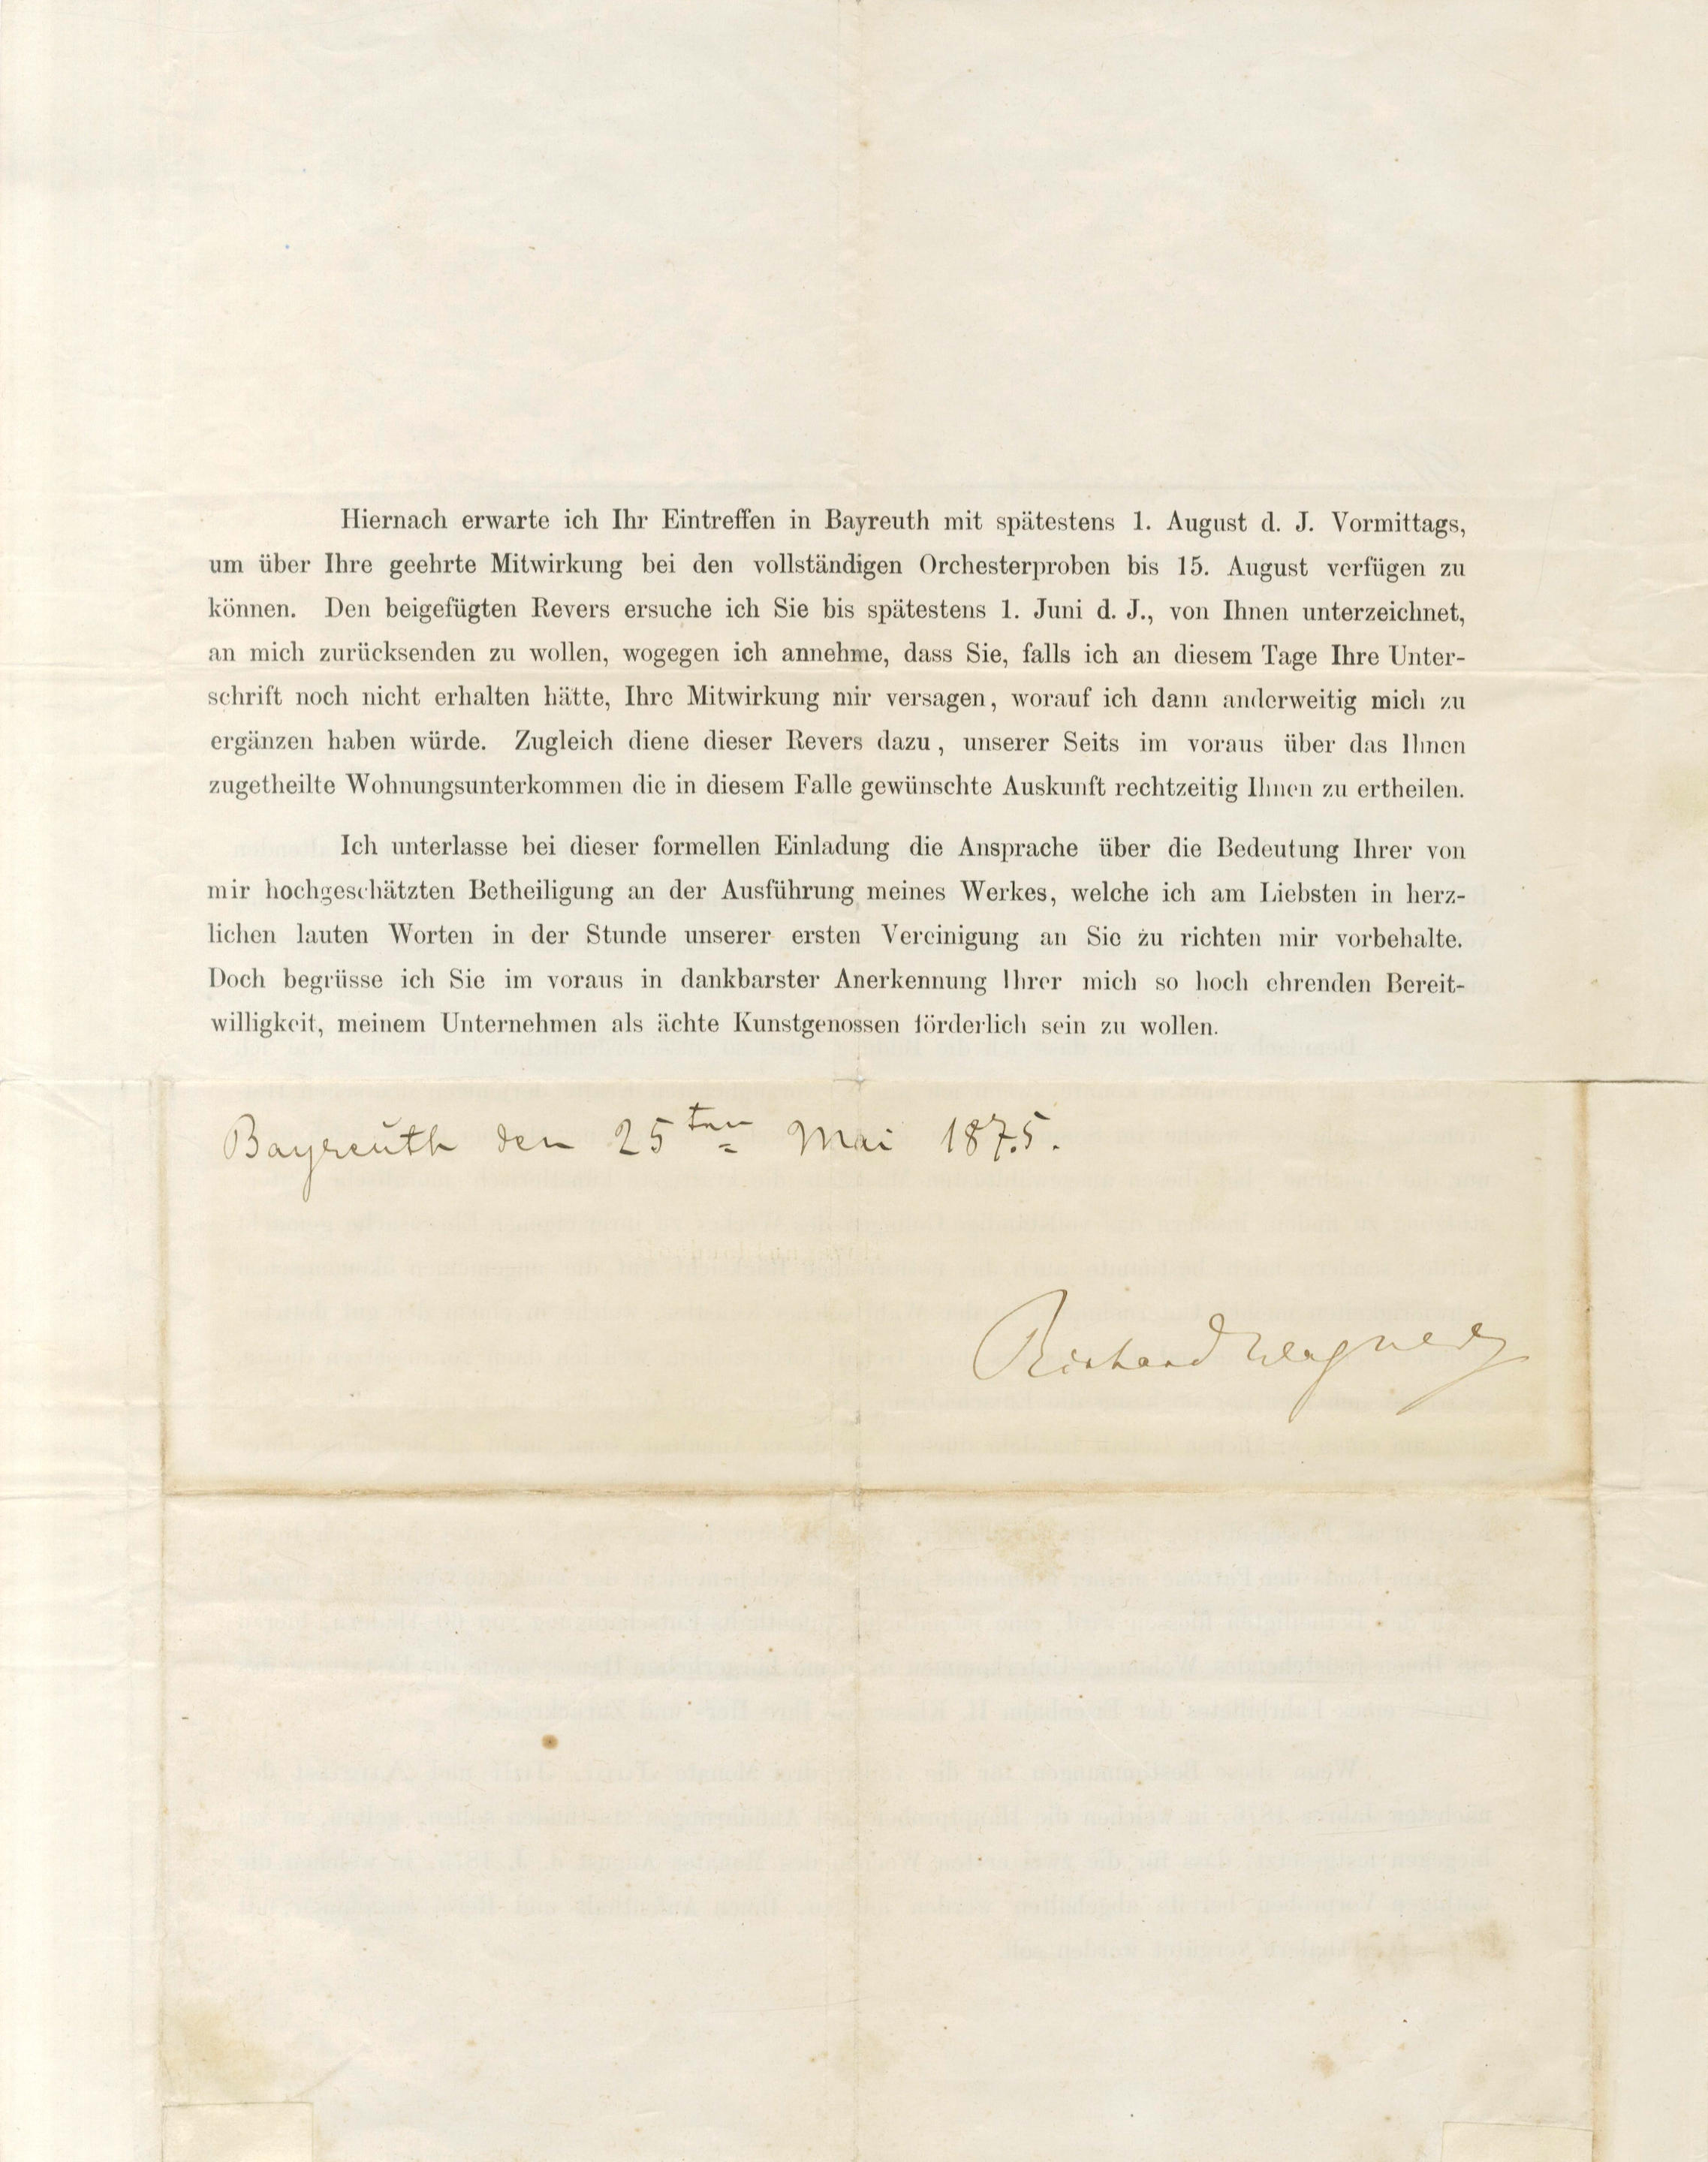 Hiernach erwarte ich Ihr Eintreffen in Bayreuth mit spätestens 1. August d. J. Vormittags,
um über Ihre geehrte Mitwirkung bei den vollständigen Orchesterproben bis 15. August verfügen zu
können. Den beigefügten Revers ersuche ich Sie bis spätestens 1. Juni d. J., von Ihnen unterzeichnet,
an mich zurücksenden zu wollen, wogegen ich annehme, dass Sie, falls ich an diesem Tage Ihre Unter-
schrift noch nicht erhalten hätte, Ihre Mitwirkung mir versagen, worauf ich dann anderweitig mich zu
ergänzen haben würde. Zugleich diene dieser Revers dazu, unserer Seits im voraus über das Ihnen
zugetheilte Wohnungsunterkommen die in diesem Falle gewünschte Auskunft rechtzeitig Ihnen zu ertheilen.
Ich unterlasse bei dieser formellen Einladung die Ansprache über die Bedeutung Ihrer von
mir hochgeschätzten Betheiligung an der Ausführung meines Werkes, welche ich am Liebsten in herz-
lichen lauten Worten in der Stunde unserer ersten Vereinigung an Sie zu richten mir vorbehalte.
Doch begrüsse ich Sie im voraus in dankbarster Anerkennung Ihrer mich so hoch ehrenden Bereit-
willigkeit, meinem Unternehmen als ächte Kunstgenossen förderlich sein zu wollen.
Bayreuth den 25ten Mai 1875.
Richard Wagner